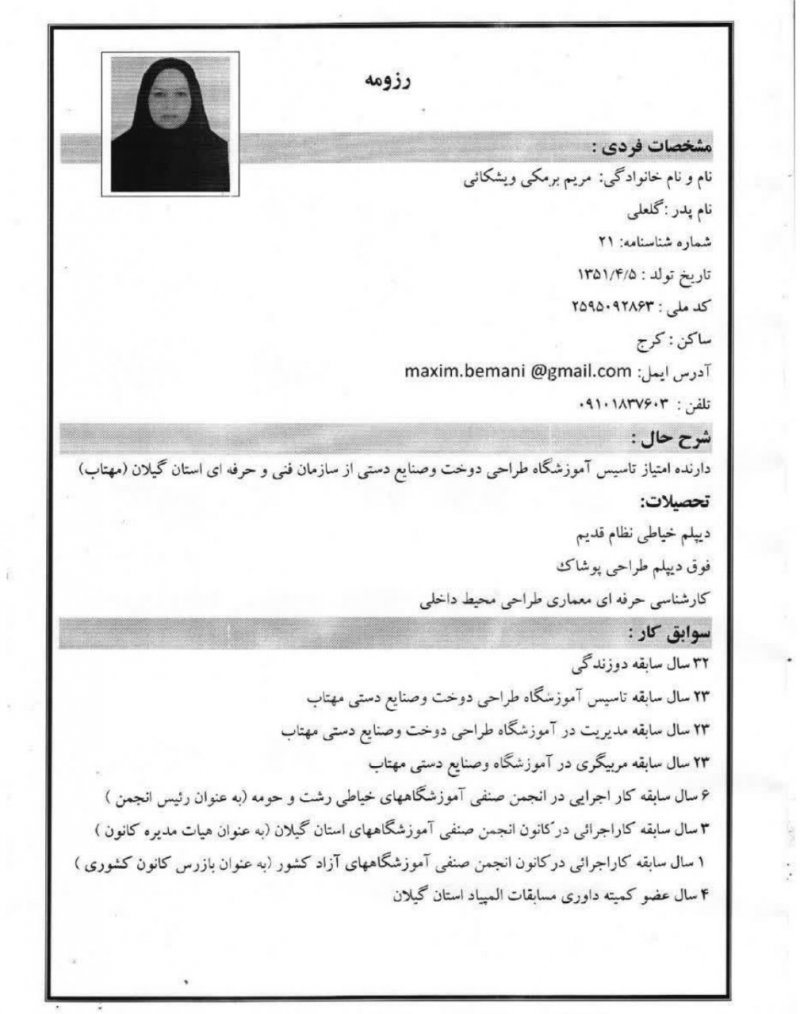 رزومه
مشخصات فردی :
نام و نام خانوادگی: مریم برمکی ویشکائی
نام پدر :گلعلی
شماره شناسنامه: ۲۱
تاریخ تولد : ۱۳۵۱/۴/۵
کد ملی : ۲۵۹۵۰۹۲۸۶۳
ساکن : کرج
آدرس ایمل: maxim.bemani @gmail.com
تلفن : ۰۹۱۰۱۸۳۷۶۰۳
شرح حال :
دارنده امتیاز تاسیس آموزشگاه طراحی دوخت وصنایع دستی از سازمان فنی و حرفه ای استان گیلان (مهتاب)
تحصیلات:
دیپلم خیاطی نظام قدیم
فوق دیپلم طراحی پوشاک
کارشناسی حرفه ای معماری طراحی محیط داخلی
سوابق کار :
۳۲ سال سابقه دوزندگی
۲۳ سال سابقه تاسیس آموزشگاه طراحی دوخت وصنایع دستی مهتاب
۲۳ سال سابقه مدیریت در آموزشگاه طراحی دوخت وصنایع دستی مهتاب
۲۳ سال سابقه مربیگری در آموزشگاه وصنایع دستی مهتاب
۶ سال سابقه کار اجرایی در انجمن صنفی آموزشگاههای خیاطی رشت و حومه (به عنوان رئیس انجمن )
۳ سال سابقه کاراجرائی درکانون انجمن صنفی آموزشگاههای استان گیلان (به عنوان هیات مدیره کانون )
۱ سال سابقه کاراجرائی درکانون انجمن صنفی آموزشگاههای آزاد کشور (به عنوان بازرس کانون کشوری )
۴ سال عضو کمیته داوری مسابقات المپیاد استان گیلان